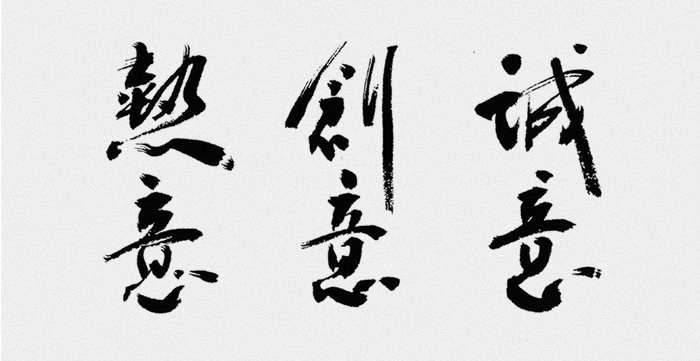 誠意
創意
熱意